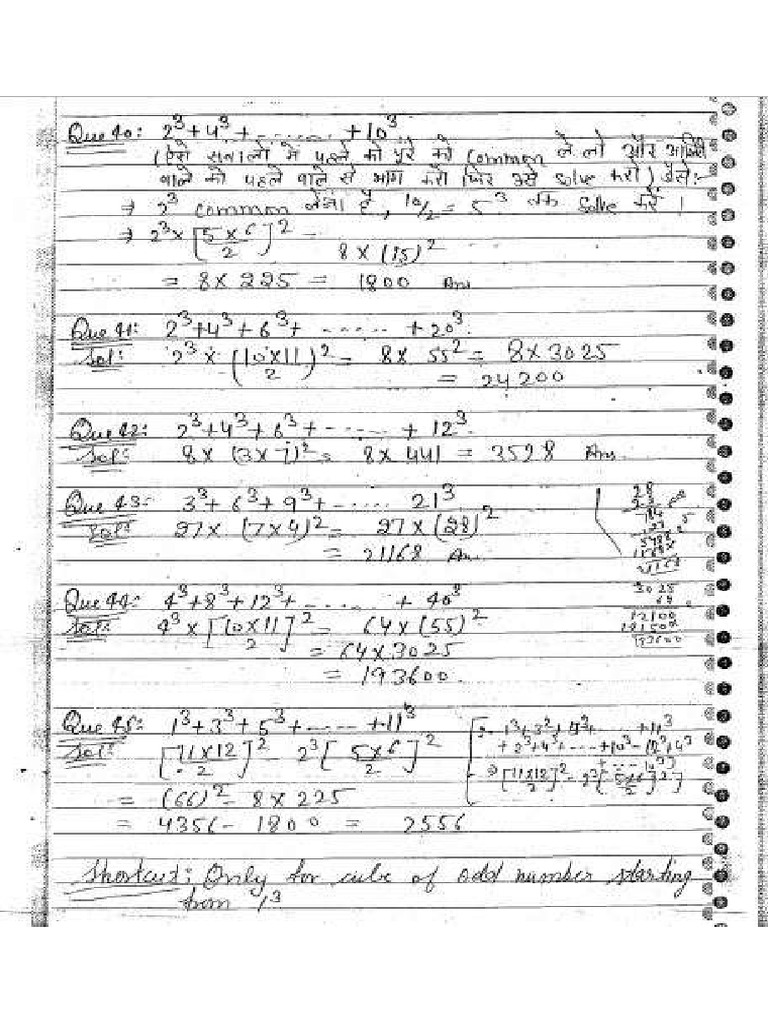 Que 40: 2³+4³+ ....... +10³
(ऐसे सवालों में पहले को पूरे को common ले लो और
वाले को पहले वाले से भाग करो फिर उसे solve करो) जैसे:
→ 2³ common लेना है, 10/2 = 5³ तक solve करें।
→ 2³× [5×6/2]² = 8×(15)²
= 8×225 = 1800 Ans
Que 41: 2³+4³+6³+ ...... +20³.
Sol: 2³ × (10×11/2)² = 8×55² = 8×3025
= 24200
Que 42: 2³+4³+6³+ ...... + 12³.
Sol: 8×(3×7)² = 8×441 = 3528 Ans
Que 43:- 3³+6³+9³+ ..... 21³
Sol: 27×(7×4)² = 27×(28)²
= 21168 An.
Que 44:- 4³+8³+12³+ ...... + 40³
Sol: 4³×[10×11/2]² = 64×(55)²
= 64×3025
= 193600.
3025
64
12100
181500×
193600
Que 45: 1³+3³+5³+ ...... +11³
Sol: [11×12/2]² - 2³[5×6/2]²
= (66)² - 8×225
= 4356 - 1800 = 2556
Shortcut: Only for cube of odd number starting
from 1³